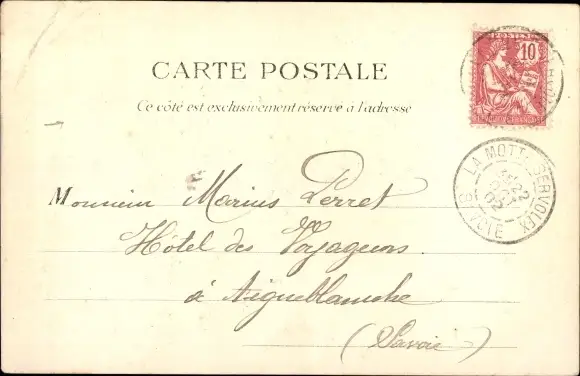 POSTES
10
CARTE POSTALE
Ce côté est exclusivement réservé à l'adresse
LA MOTTE-SERVOLEX
22
02
SAVOIE
Monsieur Marius Perret
Hôtel des Voyageurs
à Aigueblanche
(Savoie)